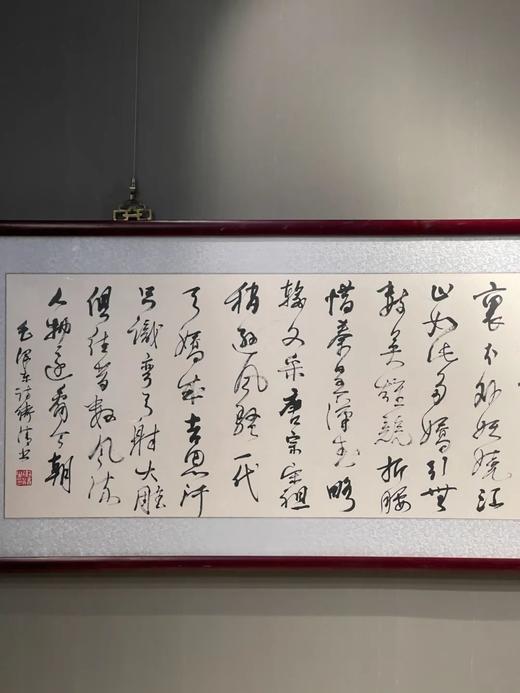 裹分外妖嬈江
山如此多嬌引無
數英雄競折腰
惜秦皇漢武略
輸文采唐宗宋祖
稍遜風騷一代
天驕成吉思汗
只識彎弓射大雕
俱往矣數風流
人物還看今朝
毛澤東詩 書